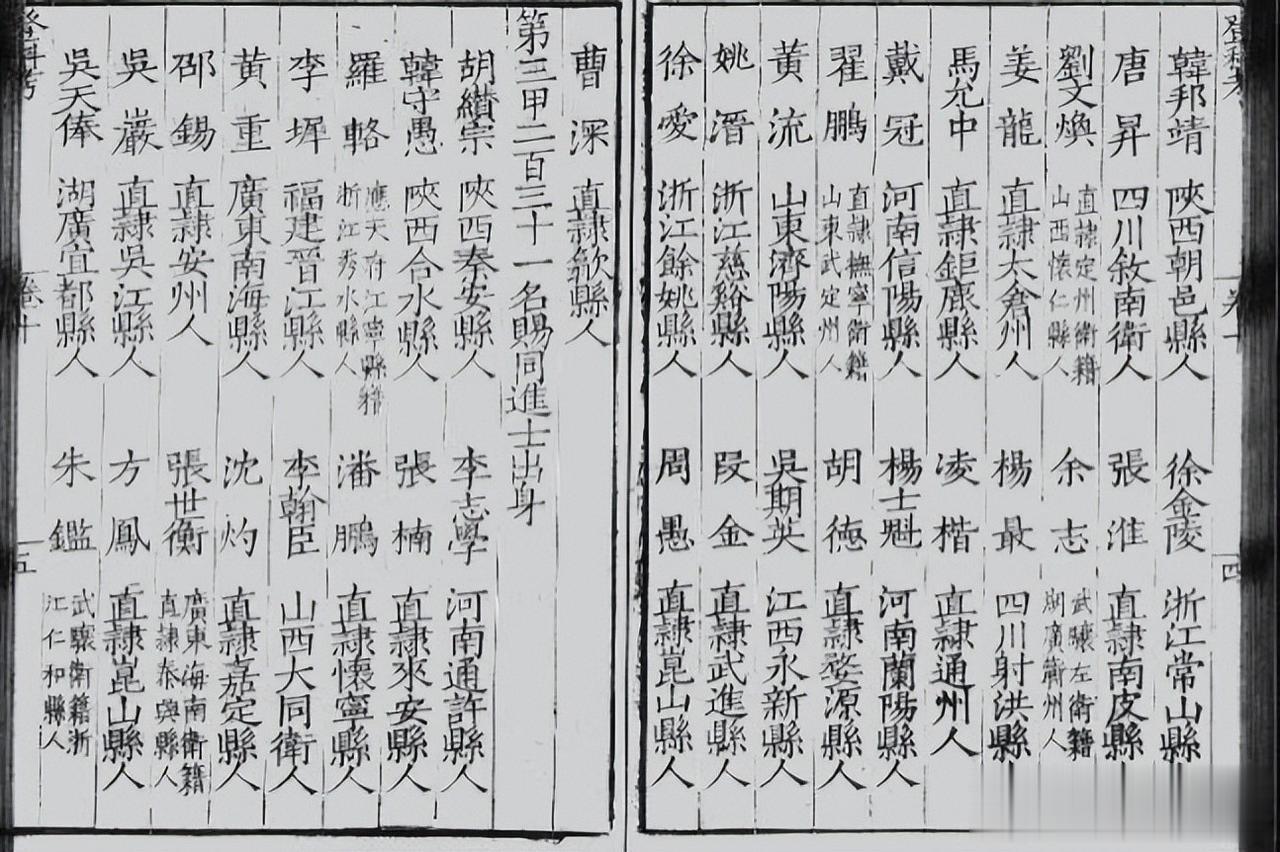 登科考
卷十
四
韓邦靖 陝西朝邑縣人 徐金陵 浙江常山縣
唐昇 四川敘南衛人 張淮 直隸南皮縣人
劉文煥 直隸定州衛籍山西懷仁縣人 余志 武驤左衛籍湖廣衡州人
姜龍 直隸太倉州人 楊最 四川射洪縣
馬允中 直隸鉅鹿縣人 凌楷 直隸通州人
戴冠 河南信陽縣人 楊士魁 河南蘭陽縣人
翟鵬 直隸撫寧衛籍山東武定州人 胡德 直隸婺源縣人
黃流 山東濟陽縣人 吳期英 江西永新縣人
姚潛 浙江慈谿縣人 段金 直隸武進縣人
徐愛 浙江餘姚縣人 周愚 直隸崑山縣人
曹深 直隸歙縣人
第三甲二百三十一名賜同進士出身
胡纘宗 陝西秦安縣人 李志學 河南通許縣人
韓守愚 陝西合水縣人 張楠 直隸來安縣人
羅輅 應天府江寧縣籍浙江秀水縣人 潘鵬 直隸懷寧縣人
李墀 福建晉江縣人 李翰臣 山西大同衛人
黃重 廣東南海縣人 沈灼 直隸嘉定縣人
邵錫 直隸安州人 張世衡 廣東海南衛籍直隸泰興縣人
吳巖 直隸吳江縣人 方鳳 直隸崑山縣人
吳天俸 湖廣宜都縣人 朱鑑 武驤衛籍浙江仁和縣人
登科考
卷十
五